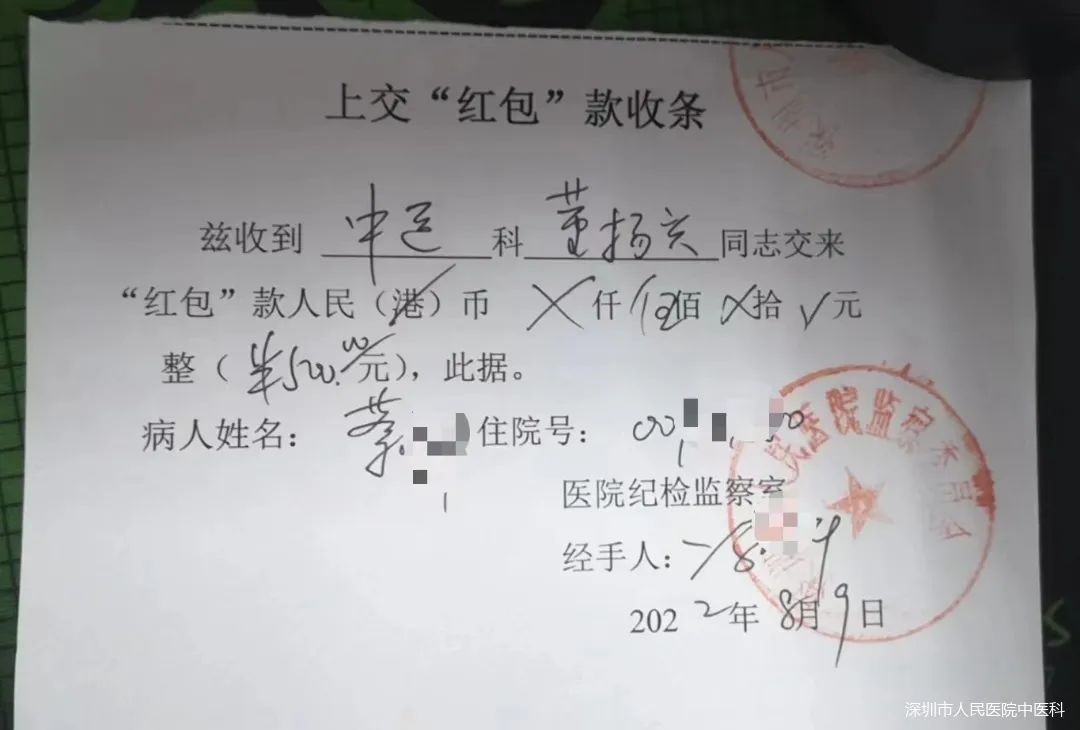 上交“红包”款收条
兹收到 中医 科 董扬宏 同志交来
“红包”款人民（港）币 X 仟 伍 佰 X 拾 元
整（ ¥500.00 元），此据。
病人姓名： 蔡 住院号： 00
医院纪检监察室
经手人：
2022年 8月9日
深圳市人民医院中医科